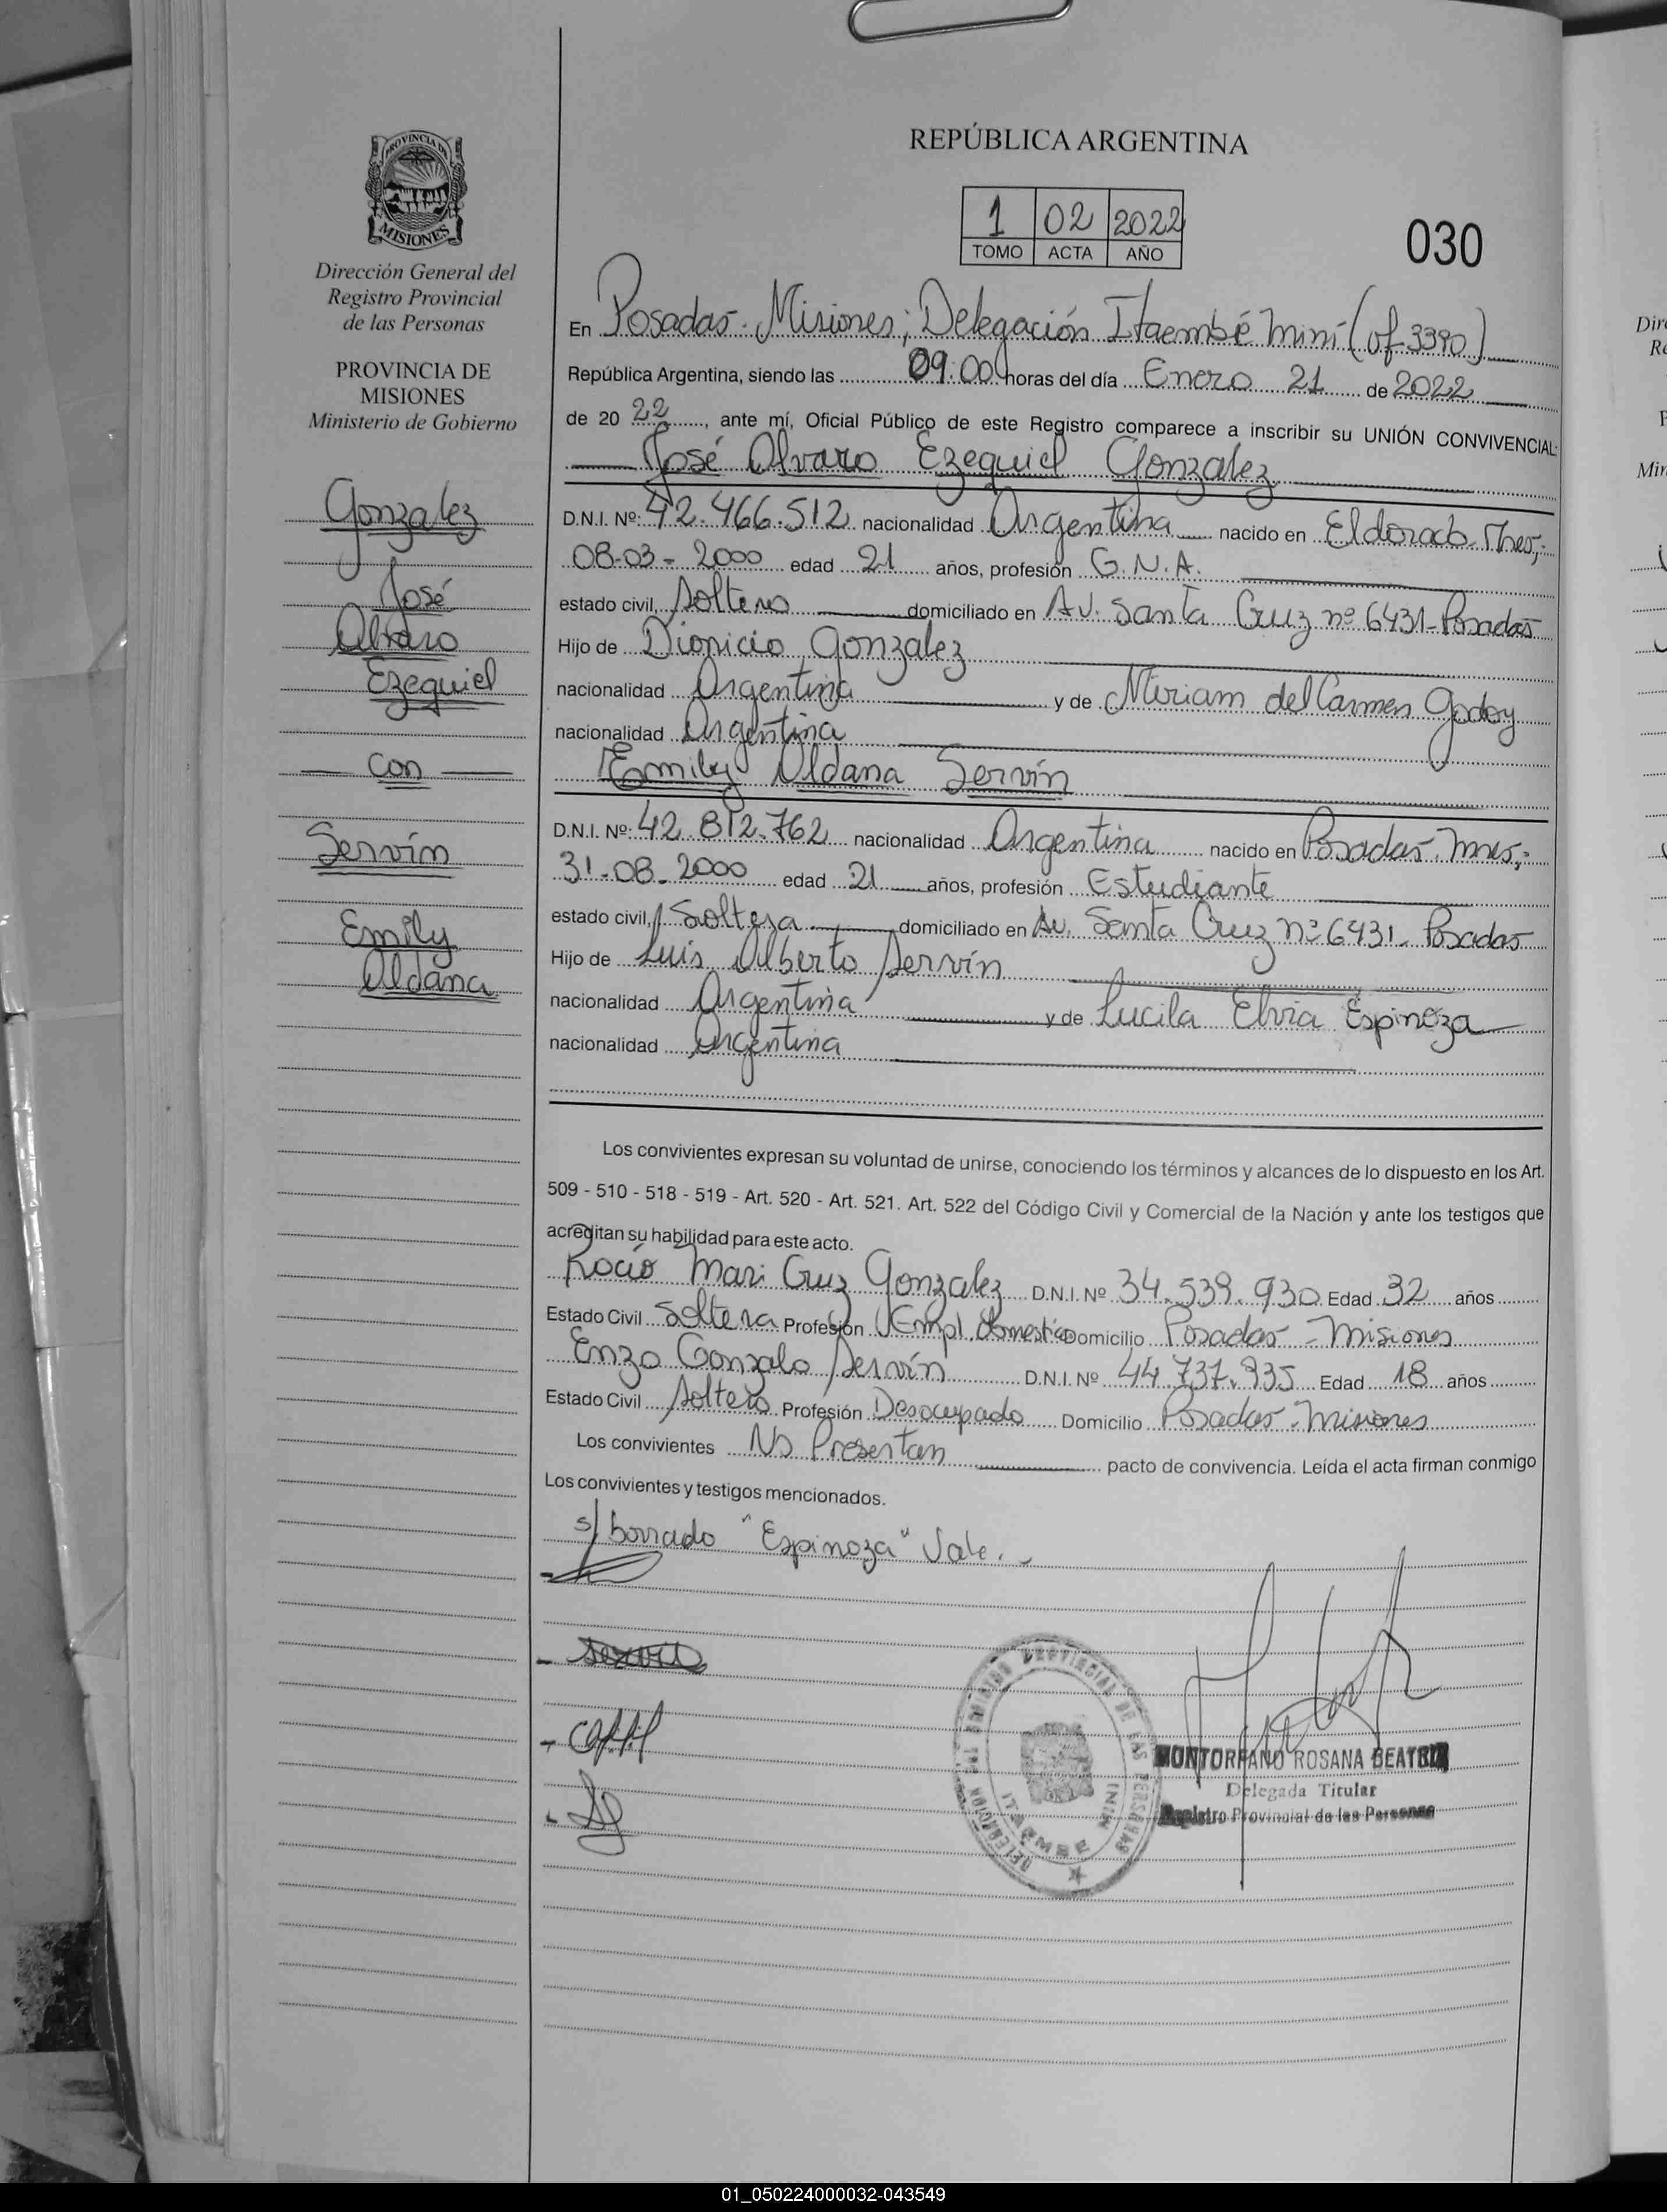 PROVINCIA DE
MISIONES
Dirección General del
Registro Provincial
de las Personas
PROVINCIA DE
MISIONES
Ministerio de Gobierno
Gonzalez
José
Alvaro
Ezequiel
Con
Servín
Emily
Aldana
REPÚBLICA ARGENTINA
1 02 2022
TOMO ACTA AÑO
030
En Posadas - Misiones; Delegación Itaembé Miní (of. 3390)
República Argentina, siendo las 09:00 horas del día Enero 21 de 2022
de 20 22, ante mí, Oficial Público de este Registro comparece a inscribir su UNIÓN CONVIVENCIAL:
José Alvaro Ezequiel Gonzalez
D.N.I. Nº: 42.466.512 nacionalidad Argentina nacido en Eldorado - Mnes;
08-03-2000 edad 21 años, profesión G.N.A.
estado civil, soltero domiciliado en Av. Santa Cruz nº 6431 - Posadas
Hijo de Dionicio Gonzalez
nacionalidad Argentina y de Miriam del Carmen Godoy
nacionalidad Argentina
Emily Aldana Servín
D.N.I. Nº: 42.812.762 nacionalidad Argentina nacido en Posadas. Mnes;
31-08-2000 edad 21 años, profesión Estudiante
estado civil, Soltera domiciliado en Av. Santa Cruz nº 6431 - Posadas
Hijo de Luis Alberto Servín
nacionalidad Argentina y de Lucila Elvia Espinoza
nacionalidad Argentina
Los convivientes expresan su voluntad de unirse, conociendo los términos y alcances de lo dispuesto en los Art.
509 - 510 - 518 - 519 - Art. 520 - Art. 521. Art. 522 del Código Civil y Comercial de la Nación y ante los testigos que
acreditan su habilidad para este acto.
Rocío Mari Cruz Gonzalez D.N.I. Nº 34.539.930 Edad 32 años
Estado Civil Soltera Profesión Empl. Domestica Domicilio Posadas - Misiones
Enzo Gonzalo Servín D.N.I. Nº 44.737.935 Edad 18 años
Estado Civil Soltero Profesión Desocupado Domicilio Posadas - Misiones
Los convivientes No Presentan pacto de convivencia. Leída el acta firman conmigo
Los convivientes y testigos mencionados.
s/borrado "Espinoza" Vale.-
PROVINCIAL DE LAS PERSONAS
ITAEMBE MINI
MONTORFANO ROSANA BEATRIZ
Delegada Titular
Registro Provincial de las Personas
01_050224000032-043549